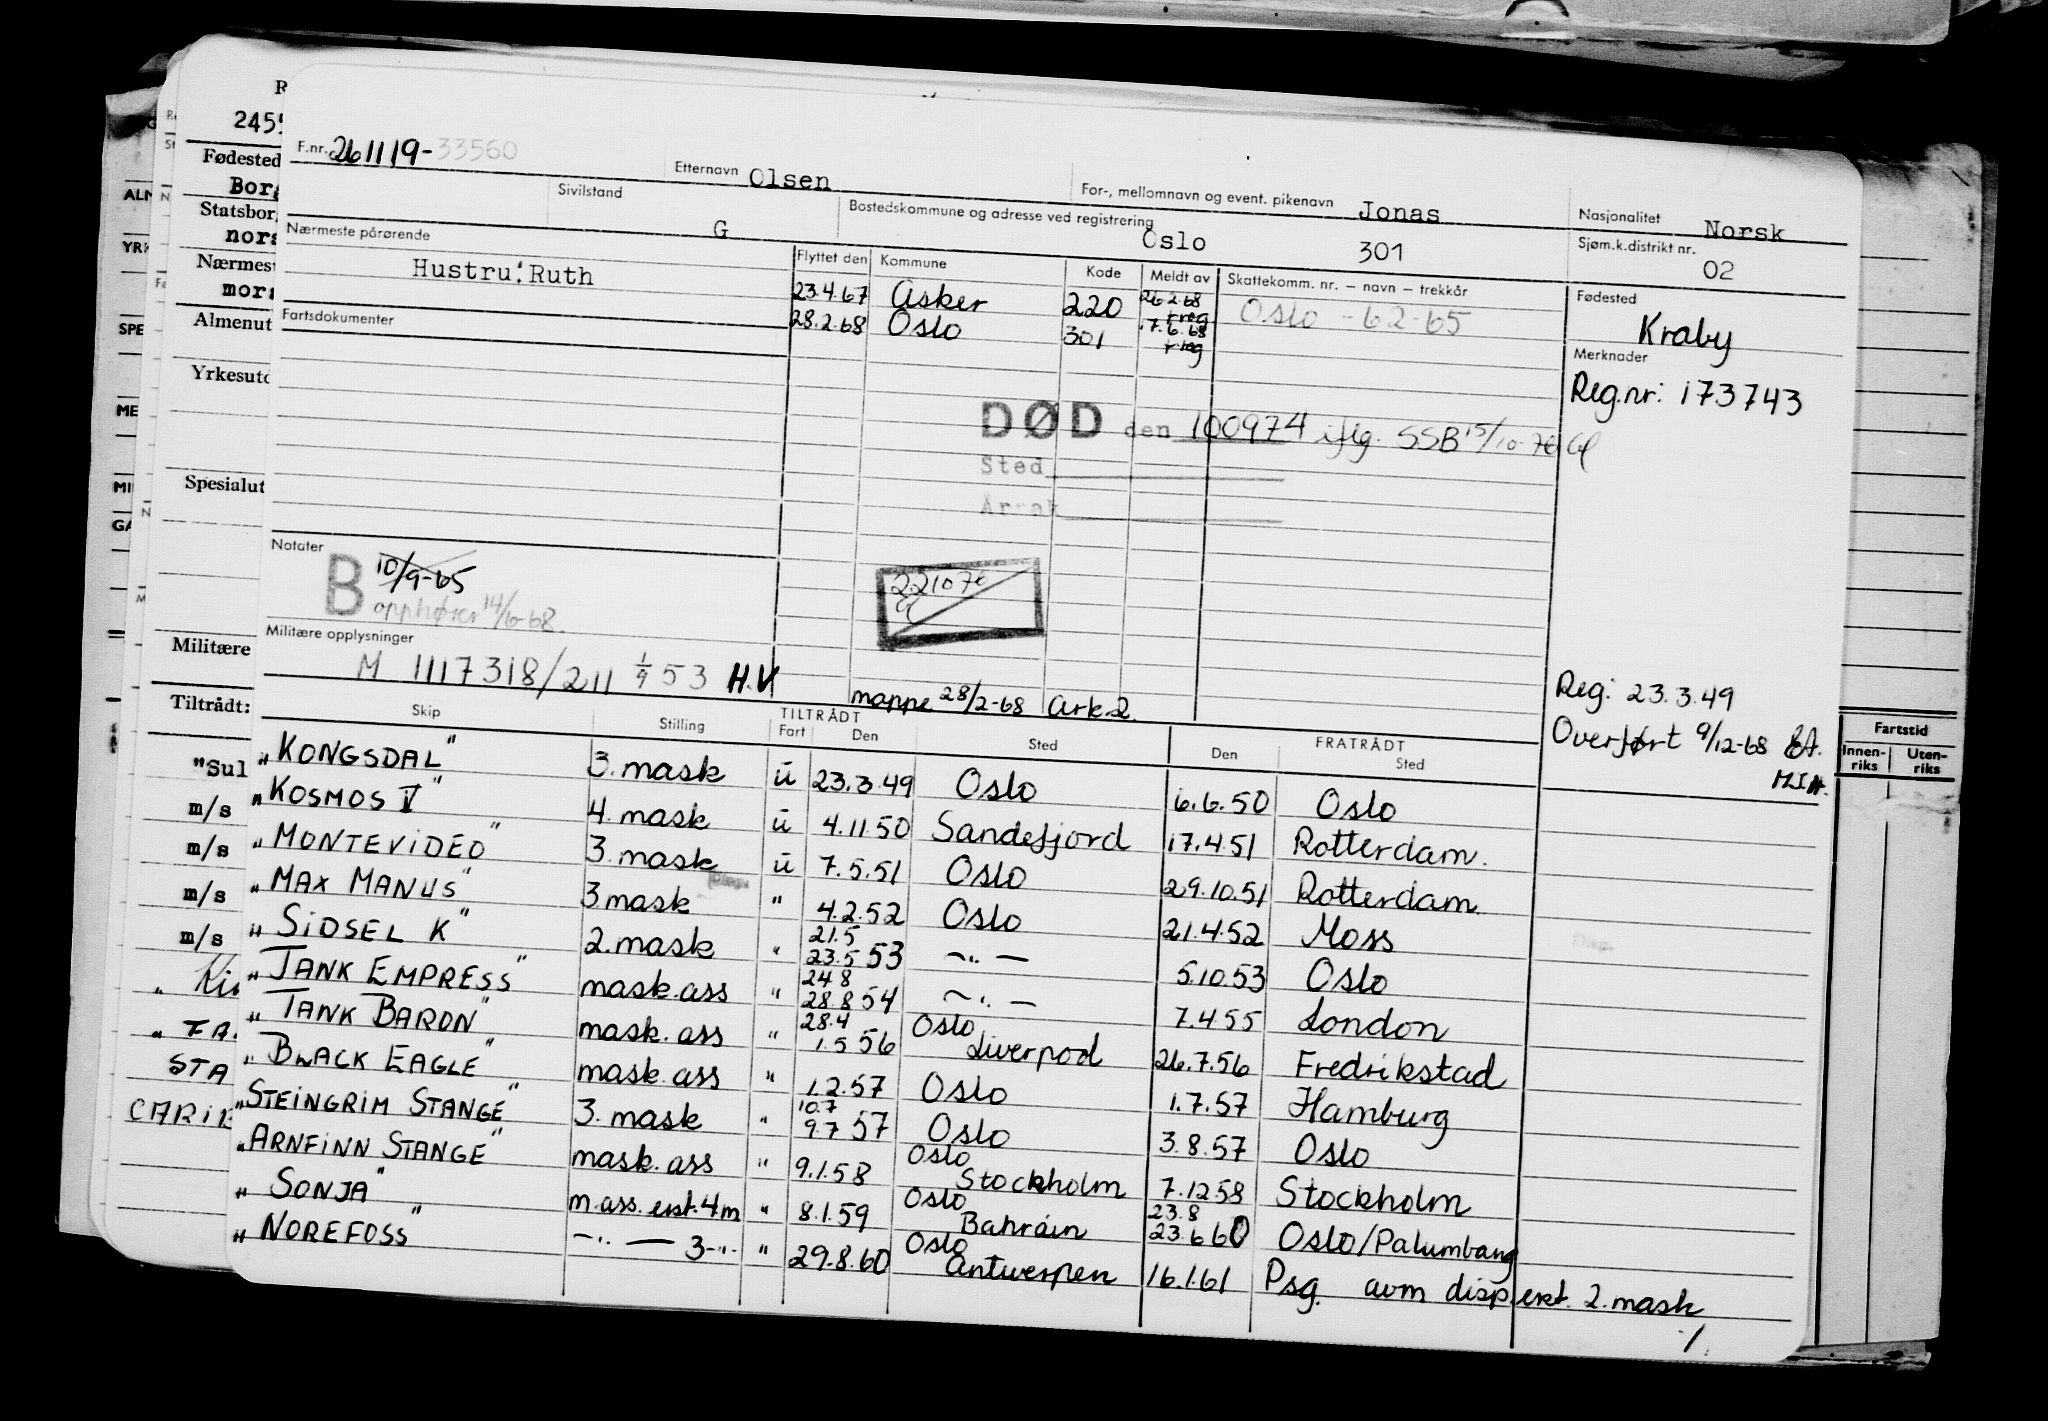 F.nr. 261119-33560 Etternavn Olsen For-, mellomnavn og event. pikenavn Jonas Nasjonalitet Norsk
Sivilstand G Bostedskommune og adresse ved registrering Oslo 301 Sjøm.k.distrikt nr. 02
Nærmeste pårørende Flyttet den Kommune Kode Meldt av Skattekomm. nr. — navn — trekkår Fødested
Hustru: Ruth 23.4.67 Asker 220 26.2.68 freg Oslo - 62-65 Kraby
Fartsdokumenter 28.2.68 Oslo 301 17.6.68 freg Merknader
Reg.nr: 173743
DØD den 100974 iflg. SSB 15/10-76
Sted
Årsak
Notater
B 10/9-65
opphører 14/6-68.
22107
Militære opplysninger
M 1117318/211 1/9 53 H.V.
mappe 28/2-68 Ark.2.
Reg: 23.3.49
Overført 9/12-68
Skip Stilling TILTRÅDT Fart Den Sted FRATRÅDT Den Sted
"KONGSDAL" 3. mask ū 23.3.49 Oslo 6.6.50 Oslo
"KOSMOS V" 4. mask ū 4.11.50 Sandefjord 17.4.51 Rotterdam.
"MONTEVIDEO" 3. mask ū 7.5.51 Oslo 29.10.51 Rotterdam
"MAX MANUS" 3 mask " 4.2.52 Oslo 21.4.52 Moss
"SIDSEL K" 2. mask " 21.5 23.5 53 —"— 5.10.53 Oslo
"TANK EMPRESS" mask.ass " 24 8 28.8 54 —"— 7.4 55 London
"TANK BARON" mask. ass " 28.4 1.5 56 Oslo Liverpool 26.7.56 Fredrikstad
"BLACK EAGLE" mask. ass " 1.2.57 Oslo 1.7.57 Hamburg
"STEINGRIM STANGE" 3. mask " 10.7 9.7 57 Oslo 3.8.57 Oslo
"ARNFINN STANGE" mask. ass " 9.1.58 Oslo Stockholm 7.12 58 Stockholm
"SONJA" m.ass. erst. 4 m " 8.1.59 Oslo Bahrain 23.8 23.6 60 Oslo/Palumbang
"NOREFOSS" —"— 3—"— " 29.8.60 Oslo Antwerpen 16.1.61 Psg. avm disp. erst. 2. mask
2455
Fødested
Borg
Statsbor
nors
Nærmest
mors
Almenut
Yrkesutd
Spesialut
Militære
Tiltrådt:
"Sul
m/s
m/s
m/s
m/s
STA
Fartstid
Innen-riks Uten-riks